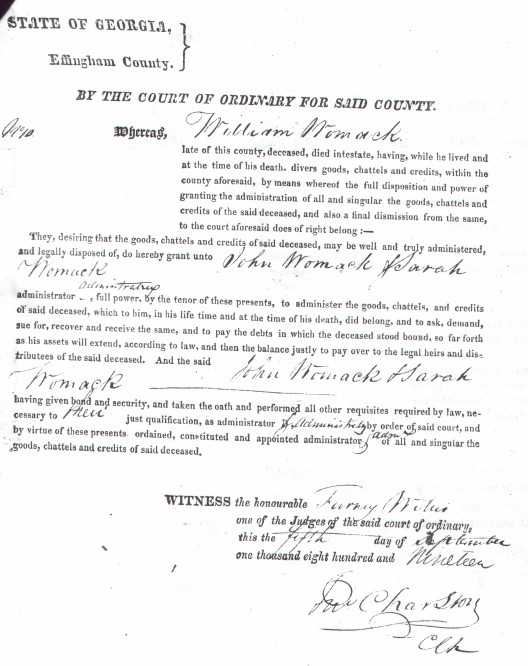 STATE OF GEORGIA,
Effingham County.
BY THE COURT OF ORDINARY FOR SAID COUNTY.
Whereas, William Womack
late of this county, deceased, died intestate, having, while he lived and
at the time of his death. divers goods, chattels and credits, within the
county aforesaid, by means whereof the full disposition and power of
granting the administration of all and singular the goods, chattels and
credits of the said deceased, and also a final dismission from the same,
to the court aforesaid does of right belong:—
They, desiring that the goods, chattels and credits of said deceased, may be well and truly administered,
and legally disposed of, do hereby grant unto John Womack & Sarah
Womack
administratrix
administrator , full power, by the tenor of these presents, to administer the goods, chattels, and credits
of said deceased, which to him, in his life time and at the time of his death, did belong, and to ask, demand,
sue for, recover and receive the same, and to pay the debts in which the deceased stood bound, so far forth
as his assets will extend, according to law, and then the balance justly to pay over to the legal heirs and dis-
tributees of the said deceased. And the said John Womack & Sarah
Womack
having given bond and security, and taken the oath and performed all other requisites required by law, ne-
cessary to their just qualification, as administrator & by order of said court, and
by virtue of these presents ordained, constituted and appointed administrator & admx of all and singular the
goods, chattels and credits of said deceased.
WITNESS the honourable Furney Willis
one of the Judges of the said court of ordinary,
this the fifth day of September
one thousand eight hundred and Nineteen
Clk